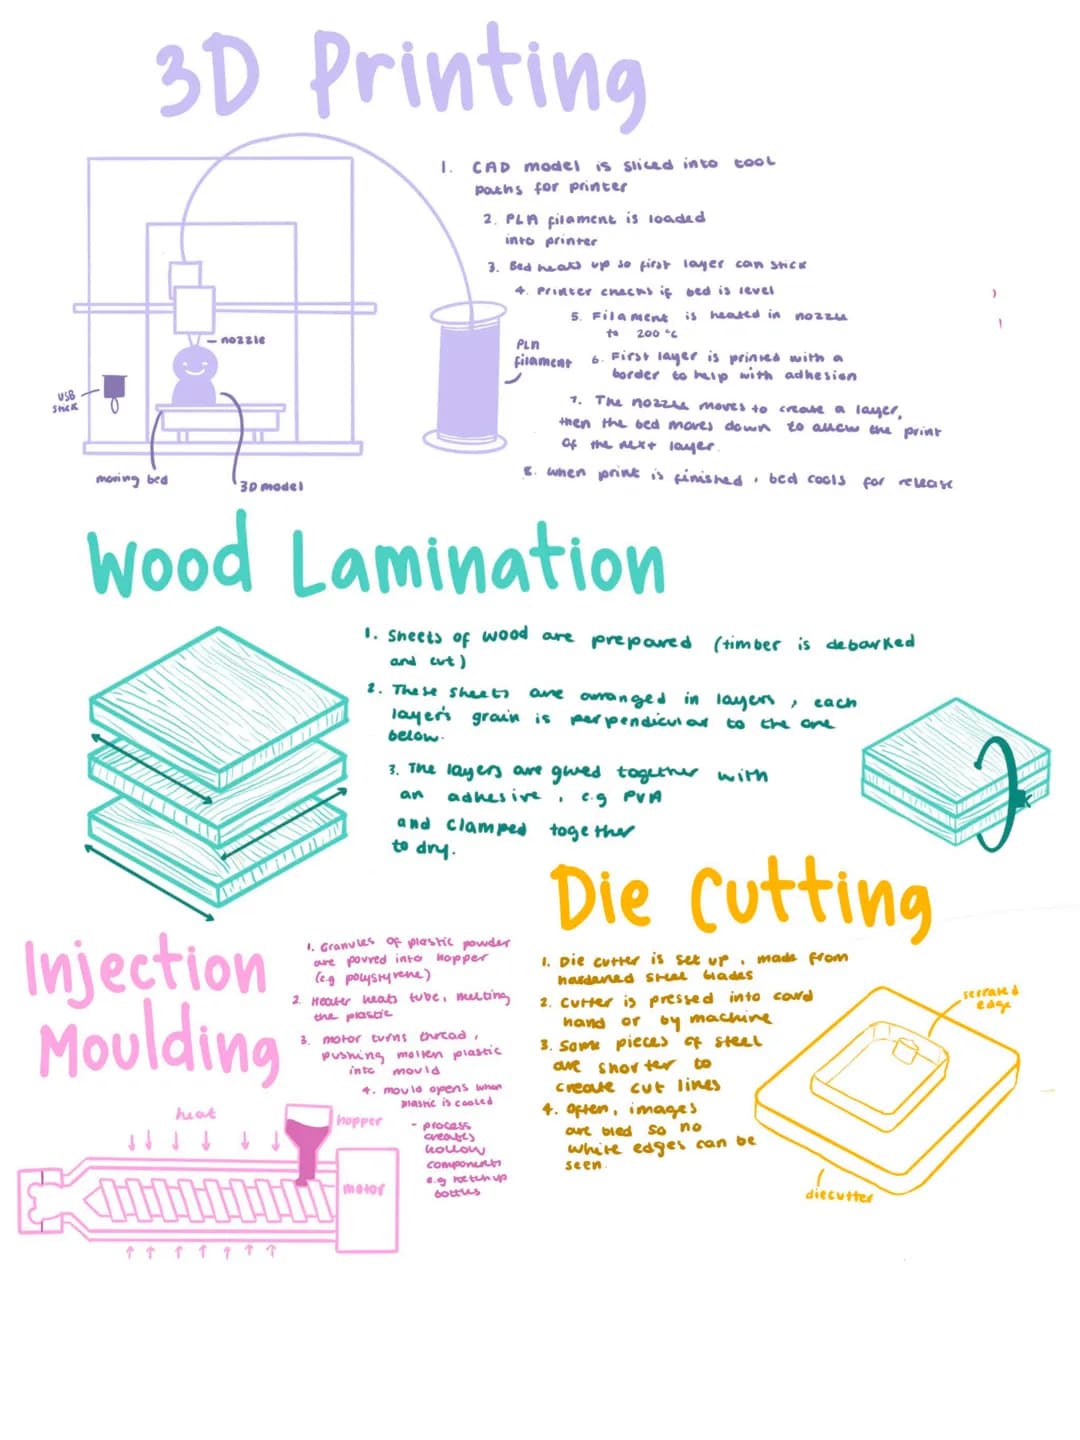 3D Printing
1. CAD model is sliced into tool
paths for printer
2. PLA filament is loaded
into printer
3. Bed heats up so first layer can stick
4. Printer checks if bed is level
5. Filament is heated in nozzle
to 200 °c
6. First layer is printed with a
border to help with adhesion
7. The nozzle moves to create a layer,
then the bed moves down to allow the print
of the next layer.
8. when print is finished, bed cools for release
nozzle
PLA
filament
USB
stick
moving bed
3D model
Wood Lamination
1. Sheets of wood are prepared (timber is debarked
and cut)
2. These sheets are arranged in layers, each
layer's grain is perpendicular to the one
below.
3. The layers are glued together with
an adhesive, e.g PVA
and clamped together
to dry.
Die Cutting
1. Die cutter is set up, made from
hardened steel blades
2. Cutter is pressed into card
hand or by machine
3. Some pieces of steel
are shorter to
create cut lines
4. Often, images
are bled so no
white edges can be
seen.
serrated
edge
diecutter
Injection
Moulding
1. Granules of plastic powder
are poured into hopper
(e.g polystyrene)
2. Heater heats tube, melting
the plastic
3. motor turns thread,
pushing molten plastic
into mould
4. mould opens when
plastic is cooled
- process
creates
hollow
components
e.g ketchup
bottles
heat
hopper
motor